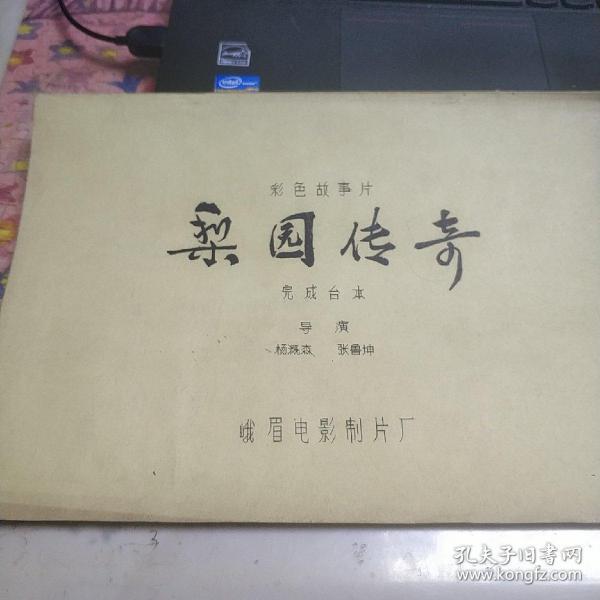 彩色故事片
梨园传奇
完成台本
导演
杨溉森 张鲁坤
峨眉电影制片厂
孔夫子旧书网
www.kongfz.com